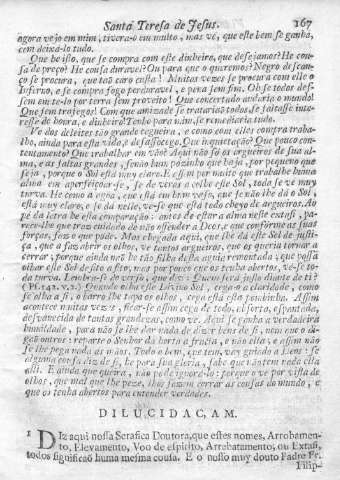 Santa Teresa de Jesus. 167
agora vejo em mim, tivera-o em muito, mas vè, que este bem se ganha,
cem deixa-lo tudo.
Que he isso, que se compra com este dinheiro, que desejamos? He cou-
sa de preço? He cousa duravel? Ou para que o queremos? Negro de scan-
ço se procura, que tao caro custa! Muitas vezes se procura com elle o
Inferno, e se compra fogo perduravel, e pena sem fim. Oh se todos des-
sem em te-lo por terra sem proveito! Que concertado andaria o mundo!
Que sem trafegos! Com que amizade se tratariaō todos, se faltasse inte-
resse de honra, e dinheiro! Tenho para mim, se remediaria tudo.
Ve dos deleites tão grande cegueira, e como com elles compra traba-
lho, ainda para esta vida, e desassocego. Que inquietação! Que pouco con-
tentamento! Que trabalhar em vão! Aqui não só os argueiros de sua al-
ma, e as faltas grandes, senão hum pózinho que haja, por pequeno que
seja, porque o Sol está muy claro. E assim por muito que trabalhe huma
alma em aperfeiçoar-se, se de veras a colhe este Sol, toda se vé muy
turva. He como a agoa, que está em hum vaso, que se não lhe dá o Sol,
está muy claro, e se dá nelle, ve-se que está todo cheyo de argueiros. Ao
pé da letra he esta comparação: antes de estar a alma neste extasi, pa-
rece-lhe que traz cuidado de não offender a Deos, e que conforme as suas
forças, faz o que pode. Mas chegada aqui, que lhe dá este Sol de justi-
ça, que a faz abrir os olhos, ve tantos argueiros, que os queria tornar a
cerrar; porque ainda não he tão filha desta aguia remontada, que possa
olhar este Sol de fito a fito, mas por pouco que os tenha abertos, vé-se to-
da turva. Lembra-se do verso, que diz: Quem será justo diante de ti?
(Ps. 142. v. 2.) Quando olha este Divino Sol, cega-a a claridade, como
se olha a si, o barro lhe tapa os olhos, cega está esta pombinha. Assim
acontece muitas vezes, ficar-se assim cega de todo, absorta, espantada,
desvanecida de tantas grandezas, como ve. Aqui se ganha a verdadeira
humildade, para não se lhe dar nada de dizer bens de si, nem que o di-
gão outros: reparte o Senhor da horta a fruta, e não ella; e assim não
se lhe pega nada às mãos. Todo o bem, que tem, vay guiado a Deos: se
alguma cousa diz de si, he para sua gloria, sabe que não tem nada ella
alli. E ainda que queira, não pode ignora-lo: porque o ve por vista de
olhos, que mal que lhe peze, lhos fazem cerrar às cousas do mundo, e
que os tenha abertos para entender verdades.
DILUCIDAÇAM.
1 Diz aqui nossa Serafica Doutora, que estes nomes, Arrobamen-
to, Elevamento, Voo de espirito, Arrebatamento, ou Extasi,
todos significaō huma mesma cousa. E o nosso muy douto Padre Fr.
Filip-